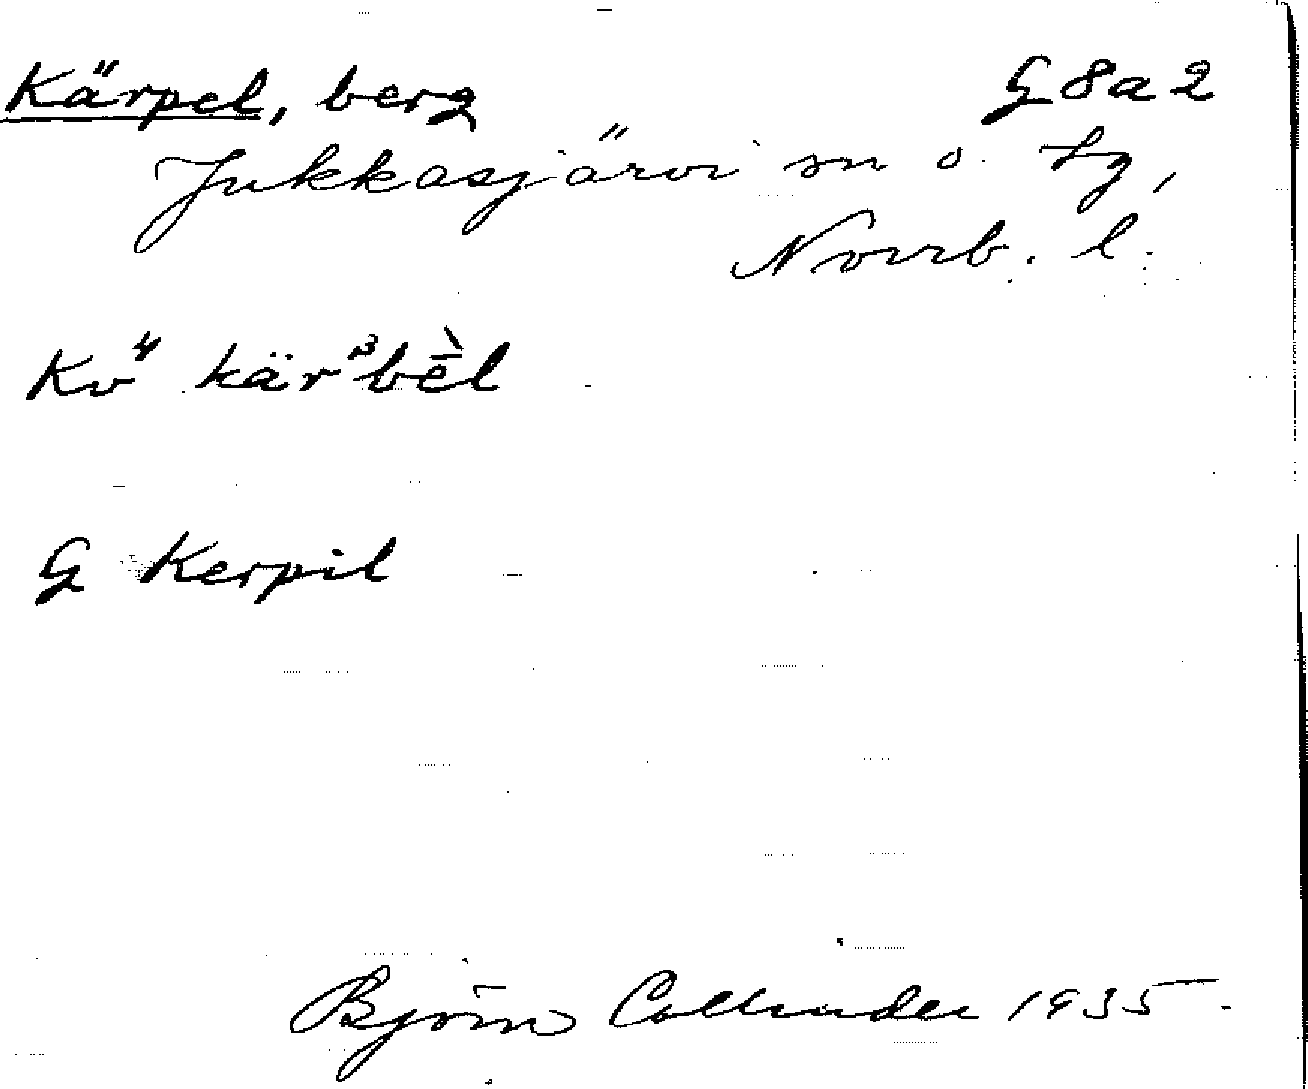 Kärpel, berg G 8a 2
Jukkasjärvi sn o. tg,
Norrb. l.
Kv⁴ kär³bèl
G Kerpil
Björn Collinder 1935